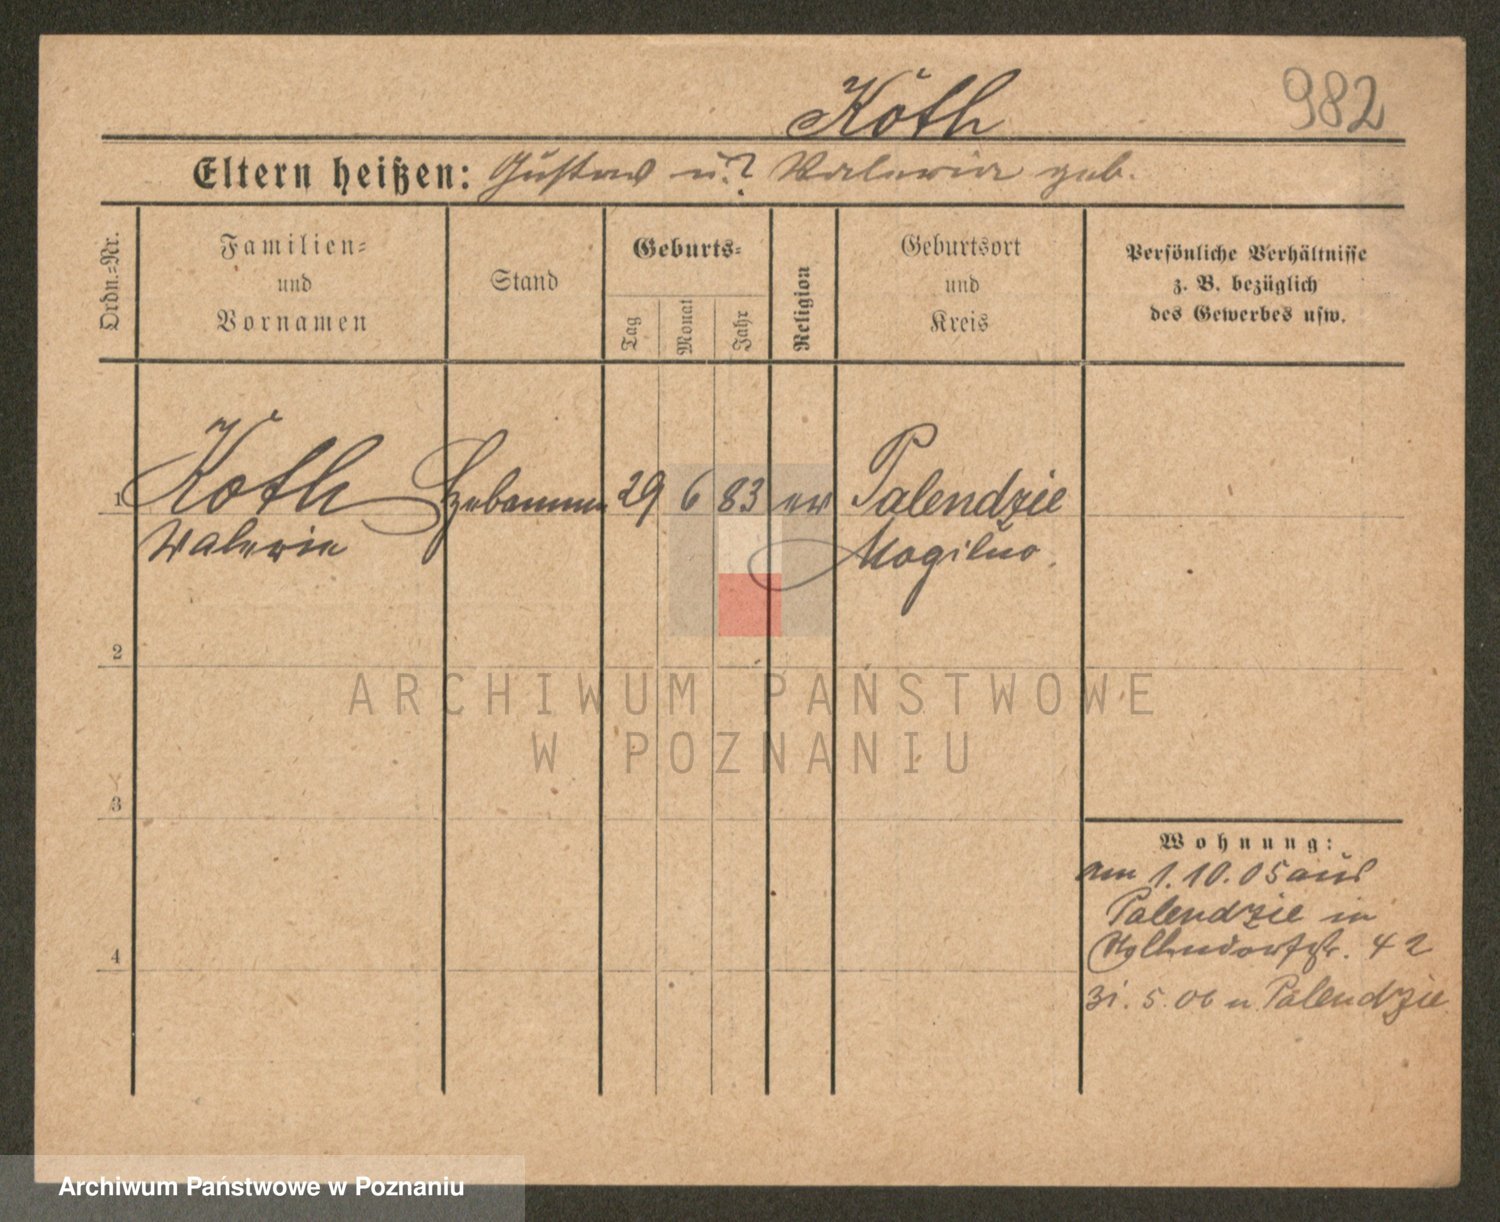 Koth
982
Eltern heißen: Gustav u.? Valeria geb.
Ordn.=Nr.
Familien=
und
Vornamen
Stand
Geburts=
Tag
Monat
Jahr
Religion
Geburtsort
und
Kreis
Persönliche Verhältnisse
z. B. bezüglich
des Gewerbes usw.
1 Koth Hebamme 29 6 83 ev Palendzie
Valerie Mogilno.
2
3
4
Wohnung:
am 1.10.05 aus
Palendzie in
42
31.5.06 n. Palendzie
ARCHIWUM PAŃSTWOWE
W POZNANIU
Archiwum Państwowe w Poznaniu